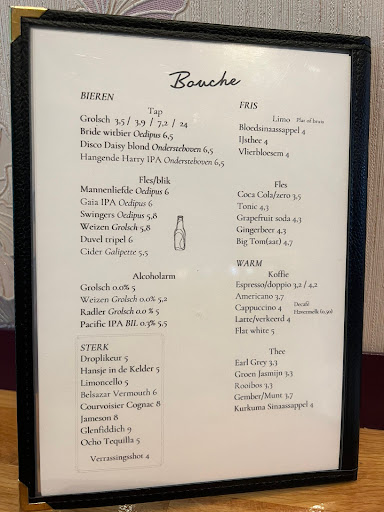 Bouche
BIEREN
Tap
Grolsch 3,5 / 3,9 / 7,2 / 24
Bride witbier Oedipus 6,5
Disco Daisy blond Ondersteboven 6,5
Hangende Harry IPA Ondersteboven 6,5
Fles/blik
Mannenliefde Oedipus 6
Gaia IPA Oedipus 6
Swingers Oedipus 5,8
Weizen Grolsch 5,8
Duvel tripel 6
Cider Galipette 5,5
Alcoholarm
Grolsch 0.0% 5
Weizen Grolsch 0.0% 5,2
Radler Grolsch 0.0 % 5
Pacific IPA BIL 0.3% 5,5
STERK
Droplikeur 5
Hansje in de Kelder 5
Limoncello 5
Belsazar Vermouth 6
Courvoisier Cognac 8
Jameson 8
Glenfiddich 9
Ocho Tequilla 5
Verrassingsshot 4
FRIS
Limo Plat of bruis
Bloedsinaasappel 4
IJsthee 4
Vlierbloesem 4
Fles
Coca Cola/zero 3,5
Tonic 4,3
Grapefruit soda 4,3
Gingerbeer 4,3
Big Tom(aat) 4,7
WARM
Koffie
Espresso/doppio 3,2 / 4,2
Americano 3,7
Cappuccino 4 Decafé
Latte/verkeerd 4 Havermelk (0,50)
Flat white 5
Thee
Earl Grey 3,3
Groen Jasmijn 3,3
Rooibos 3,3
Gember/Munt 3,7
Kurkuma Sinaasappel 4